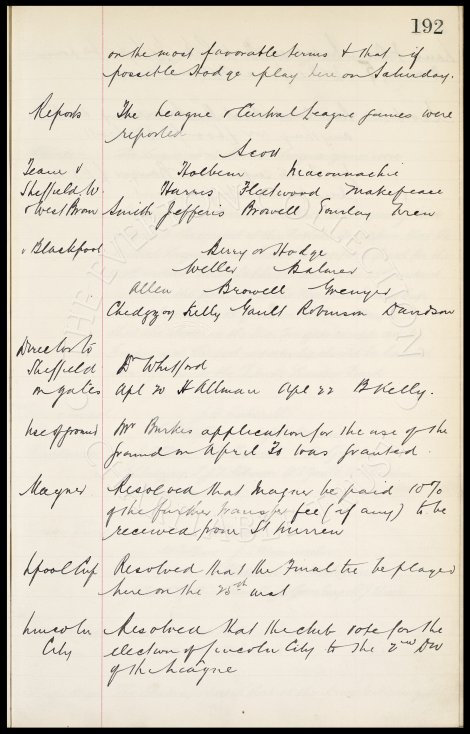 192
on the most favorable terms & that if
possible Hodge play here on Saturday.
Reports The League & Central League games were
reported
Scott
Team v Holbem Maconnachie
Sheffield W. Harris Fleetwood Makepeace
& West Brom Smith Jefferis Browell Gourlay Wren
v Blackpool Berry or Hodge
Weller Balmer
Allen Browell Grenyer
Chedgzoy Kelly Gault Robinson Davidson
Director to
Sheffield Dr Whitford
on gates Apl 20 H Allman Apl 22 B Kelly.
Use of ground Mr Burkes application for the use of the
ground on April 30 was granted.
Magner Resolved that Magner be paid 10%
of the further transfer fee (if any) to be
received from St Mirren
Lpool Cup Resolved that the Final tie be played
here on the 25th inst
Lincoln Resolved that the club vote for the
City election of Lincoln City to the 2nd Div
of the League
THE EVERTON COLLECTION